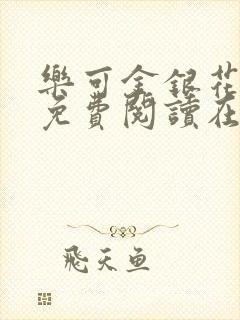 樂可金銀花
免費閱讀在
飛天魚